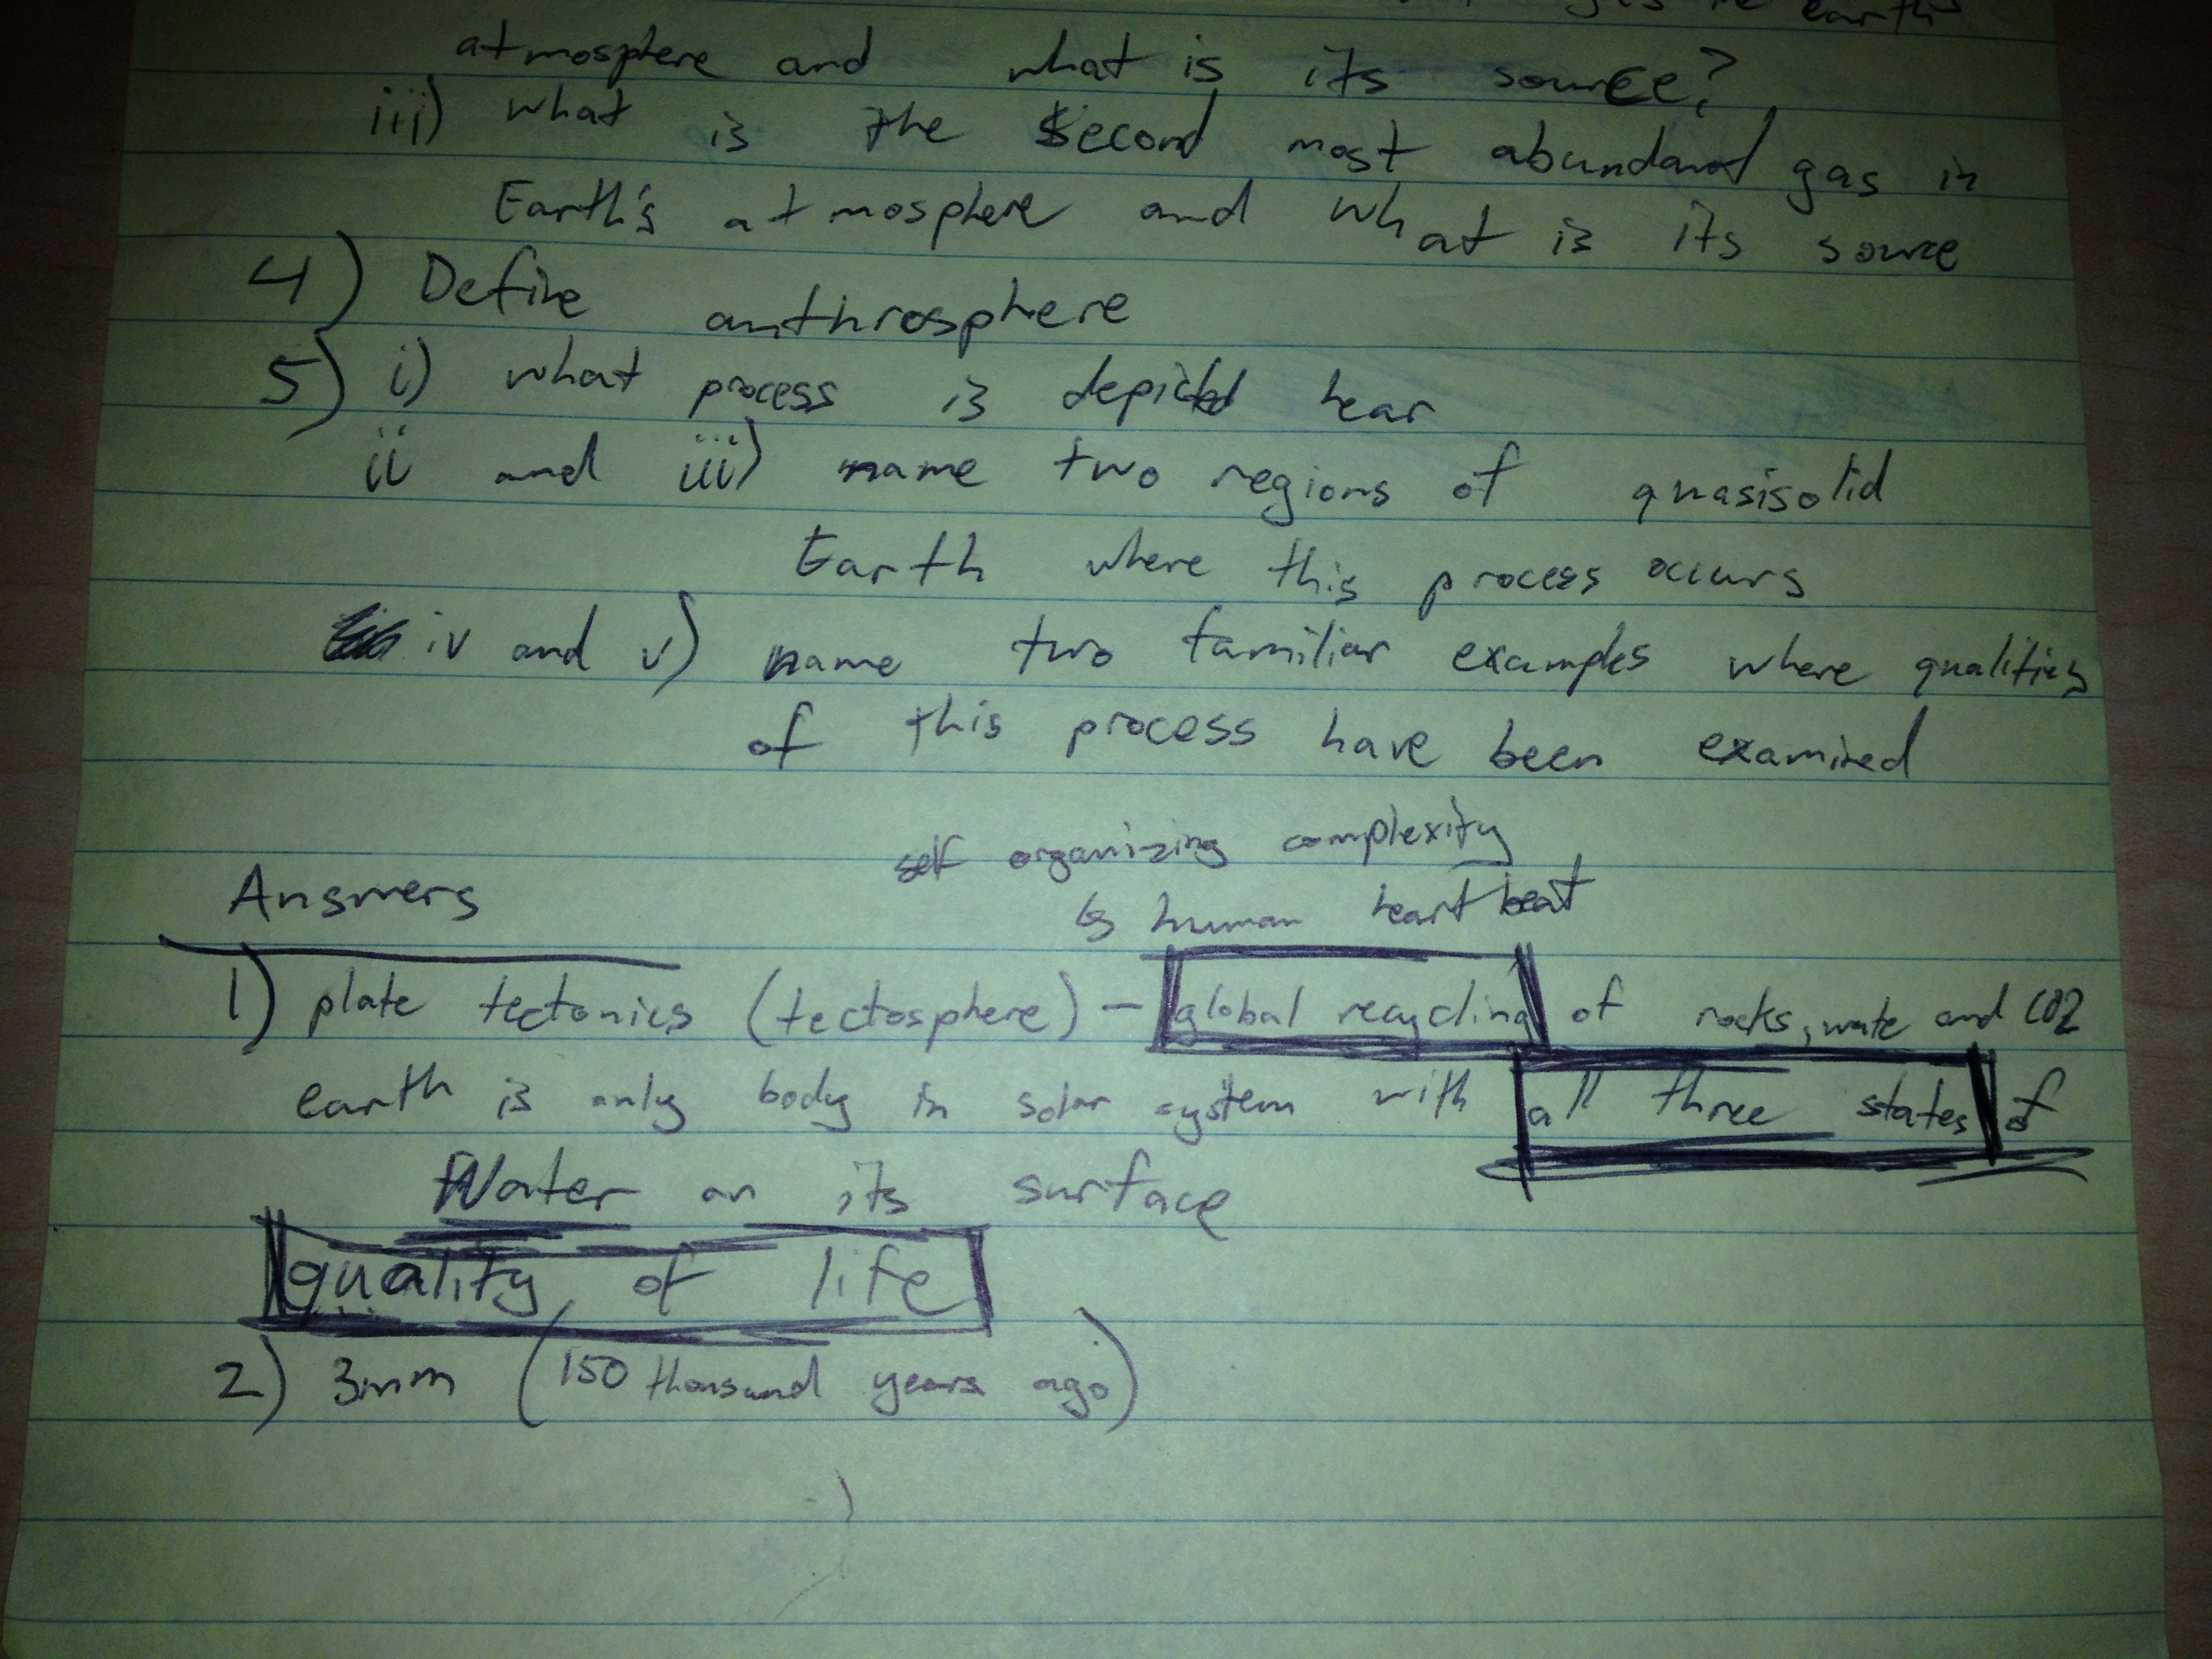 earth
atmosphere and what is its source?
iii) what is the second most abundant gas in
Earth's atmosphere and what is its source
4) Define anthrosphere
5) i) what process is depicted hear
ii and iii) name two regions of quasisolid
Earth where this process occurs
iv and v) name two familiar examples where qualities
of this process have been examined
self organizing complexity
↳ human heart beat
Answers
1) plate tectonics (tectosphere) - global recycling of rocks, wate and CO2
earth is only body in solar system with all three states of
Water on its surface
quality of life
2) 3mm (150 thousand years ago)